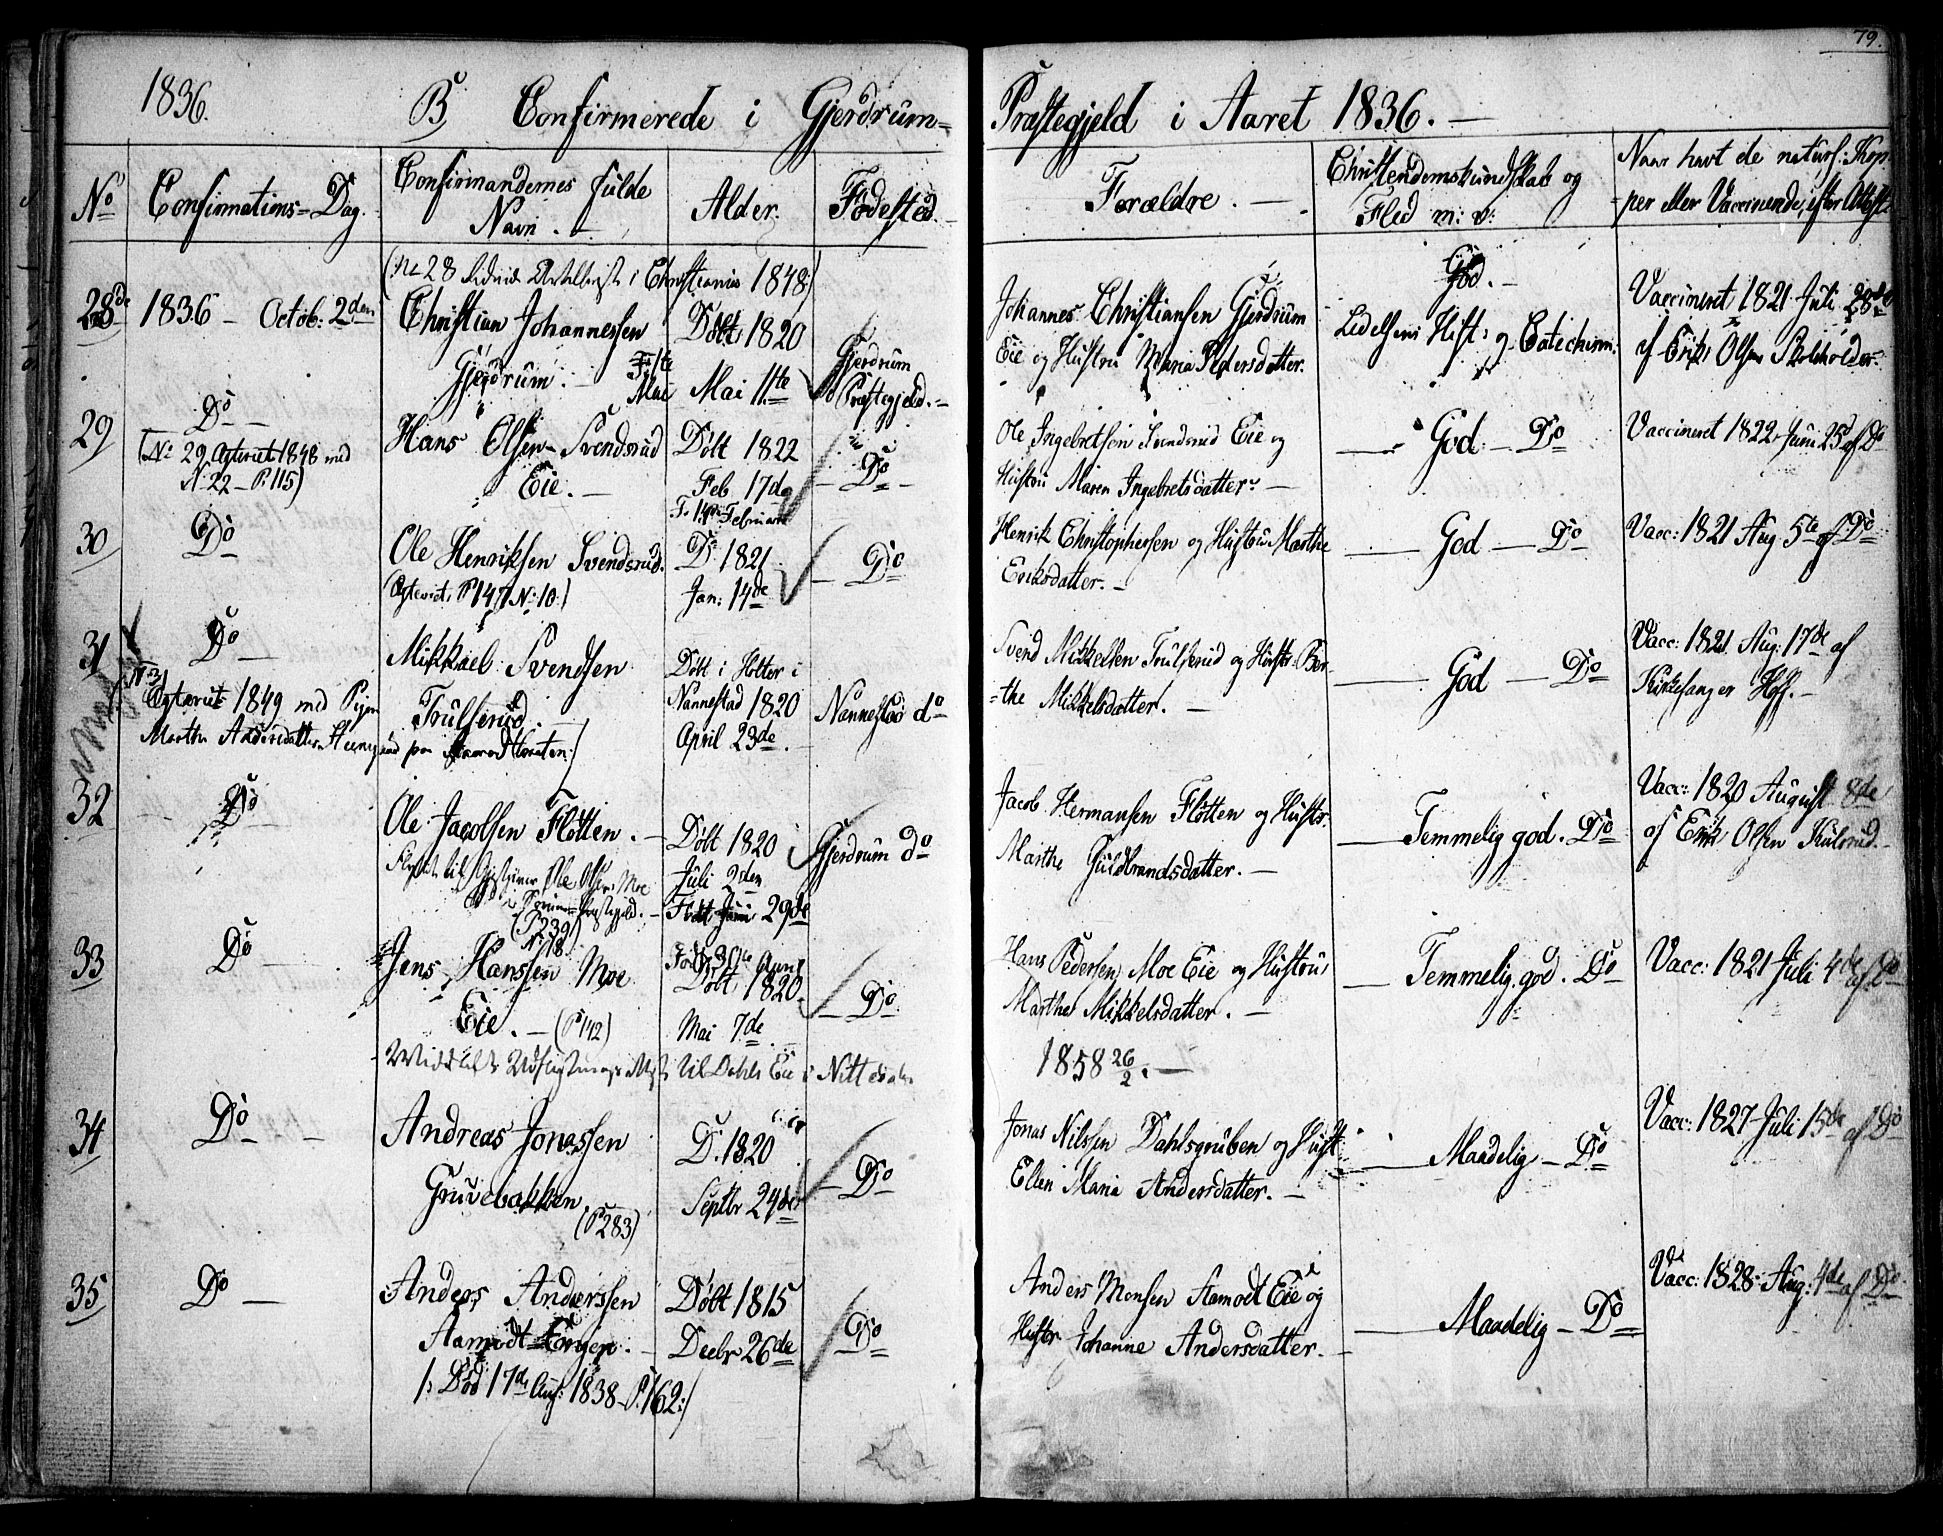 79.
1836. B Confirmerede i Gjerdrum=
Præstegjeld i Aaret 1836. —
No Confirmations=Dag. Confirmandernes fulde Navn. — Alder. Fødested.
Forældre. — Christendomskundskab og Flid m: v: Naar havt de naturl: Kop-
per eller Vaccinerede, efter Attest
(No 28 Christiania 1848)
28de 1836 — Octob: 2den Christian Johannessen Døbt 1820
Gjerdrum. — Mai 11te Gjerdrum Præstegjeld. —
Johannes Christiansen Gjerdrum
Eie og Hustru Maria Pedersdatter.
God. —
Vaccineret 1821 Juli
af Erik Olsen Skoleholder
29 Do — Hans Olsen Svendsrud Døbt 1822
(No 29 1848 med
N 22 — P. 115)
Eie. — Feb 17de Do —
F. 14 Februar
Ole Ingebretsen Svendsrud Eie og
Hustru Maren Ingebretsdatter —
God — Do
Vaccineret 1822 Juni 25d af Do
30 Do Ole Henriksen Svendsrud. D. 1821
P 147 No 10) Jan: 14de — Do
Henrik Christophersen og Hustru Marthe
Eriksdatter. —
God — Do
Vacc: 1821 Aug 5te af Do
31 Do — Mikkael Svendsen Døbt i Holter i
1849 med Pigen Trulserud. Nannestad 1820 Nannestad do
Marthe Andersdatter April 23de
Svend Mikkelsen Trulserud og Hustr: Ber=
=the Mikkelsdatter. —
God — Do
Vacc: 1821 Aug: 17de af
Kirkesanger Hoff. —
32 Do Ole Jacobsen Fløtten. — Døbt 1820 Gjerdrum do
Ole Olsen Moe Juli 2den
Præstegjeld. — Født Juni 29de
(P 239)
No 18
Jacob Hermansen Fløtten og Hustr:
Marthe Guldbrandsdatter. —
Temmelig god. Do
Vacc: 1820 August 8de
af Erik Olsen Kulsrud.
33 Do Jens Hanssen Moe Døbt 1820
Eie. — (P 142) Mai 7de — Do
til Dahls Eie i Nittedalen
Hans Pedersen Moe Eie og Hustru
Marthe Mikkelsdatter. —
1858 26/2. —
Temmelig god. Do
Vacc: 1821 Juli 4de af Do
34 Do — Andreas Jonassen D. 1820
Gruvebakken Septbr 24de — Do
(P 283)
Jonas Nilssen Dahlsgruben og Hust
Ellen Maria Andersdatter. —
Maadelig — Do
Vacc: 1827 Juli 15de af Do
35 Do — Anders Anderssen Døbt 1815
Aamodt Engen. — Decbr 26de Do
/: Død 17de Aug: 1838 — P. 162:/
Anders Monsen Aamodt Eie og
Hustr Johanne Andersdatter. —
Maadelig — Do
Vacc: 1828 Aug: 4de af Do